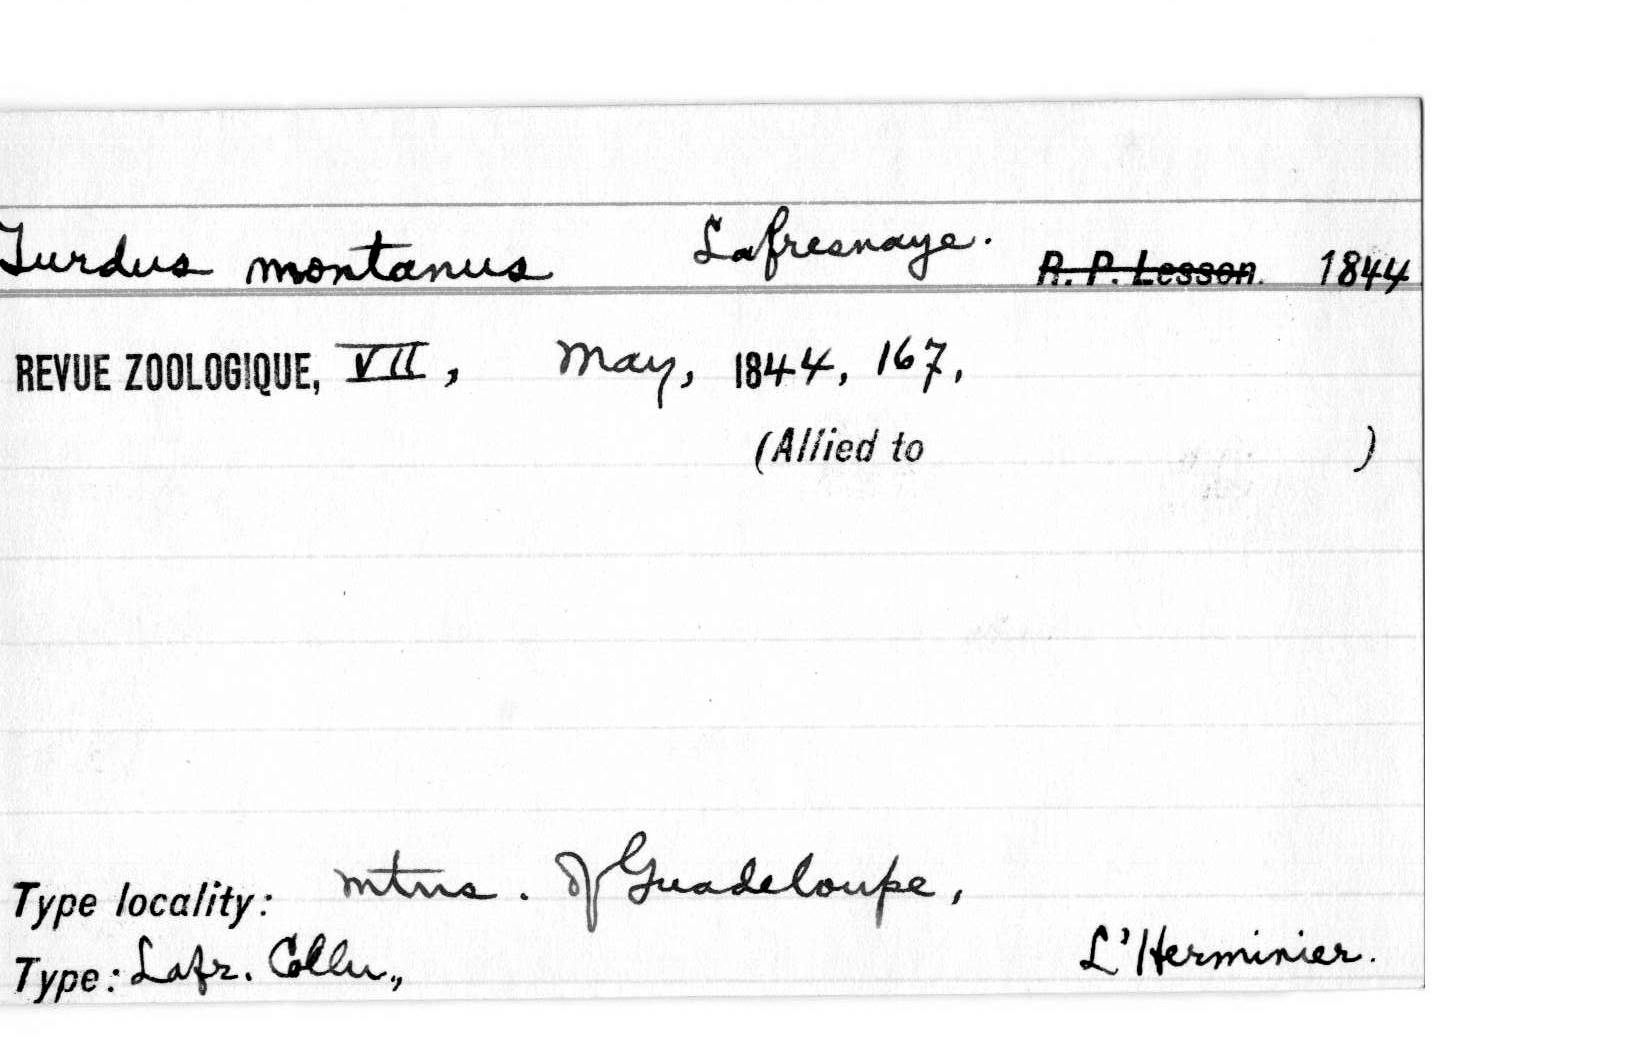 Turdus montanus Lafresnaye. R. P. Lesson. 1844
REVUE ZOOLOGIQUE, VII, May, 1844, 167,
(Allied to )
Type locality: mtns. of Guadeloupe,
Type: Lafr. Colln., L'Herminier.